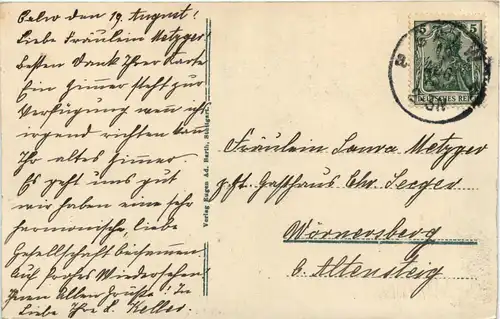 Calw den 19. August!
Liebe Fräulein Metzger
Besten Dank Ihrer Karte
Ein Zimmer steht zur
Verfügung wenn ich
irgend richten kann
Ihr altes Zimmer.
Es geht uns gut
wir haben eine sehr
harmonische, liebe
Gesellschaft beisammen.
Auf frohes Wiedersehen!
Ihnen Allen Grüße! In
Liebe Ihre L. Keller
Verlag Eugen Ad. Barth, Stuttgart.
5 5
DEUTSCHES REICH
Fräulein Laura Metzger
z. Gasthaus Chr. Seeger
Wörnersberg
b. Altensteig